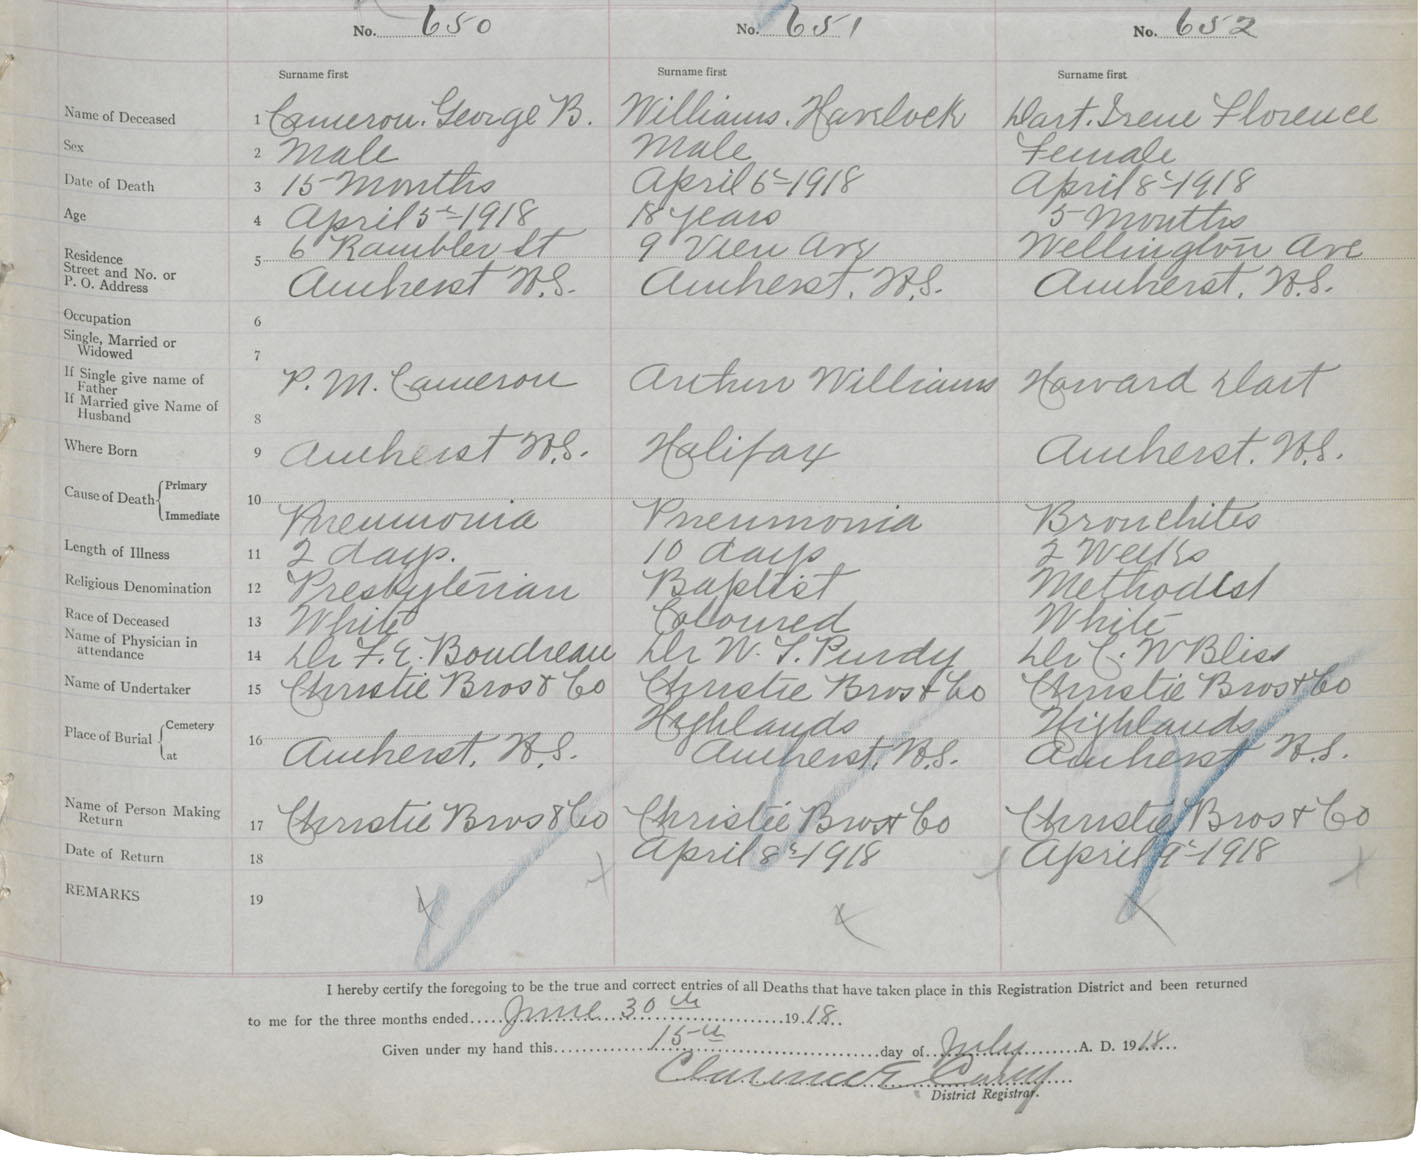 No. 650 No. 651 No. 652
Surname first Surname first Surname first
Name of Deceased 1 Cameron. George B. Williams. Havelock Dart. Irene Florence
Sex 2 Male Male Female
Date of Death 3 15 Months April 6th-1918 April 8th-1918
Age 4 April 5th-1918 18 years 5 Months
Residence 5 6 Rambler St 9 View Ave Wellington Ave
Street and No. or
P. O. Address Amherst N.S. Amherst. N.S. Amherst. N.S.
Occupation 6
Single, Married or
Widowed 7
If Single give name of
Father P. M. Cameron Arthur Williams Howard Dart
If Married give Name of
Husband 8
Where Born 9 Amherst N.S. Halifax Amherst. N.S.
Cause of Death Primary 10
Immediate Pneumonia Pneumonia Bronchites
Length of Illness 11 2 days. 10 days 2 Weeks
Religious Denomination 12 Presbyterian Baptist Methodist
Race of Deceased 13 White Coloured White
Name of Physician in
attendance 14 Dr F. E. Boudreau Dr W. T. Purdy Dr C. W Bliss
Name of Undertaker 15 Christie Bros & Co Christie Bros & Co Christie Bros & Co
Place of Burial Cemetery 16 Highlands Highlands
at Amherst. N.S. Amherst. N.S. Amherst N.S.
Name of Person Making
Return 17 Christie Bros & Co Christie Bros & Co Christie Bros & Co
Date of Return 18 April 8th-1918 April 9th-1918
REMARKS 19
I hereby certify the foregoing to be the true and correct entries of all Deaths that have taken place in this Registration District and been returned
to me for the three months ended June 30th 1918.
Given under my hand this 15th day of July A. D. 1918
Clarence E.
District Registrar.